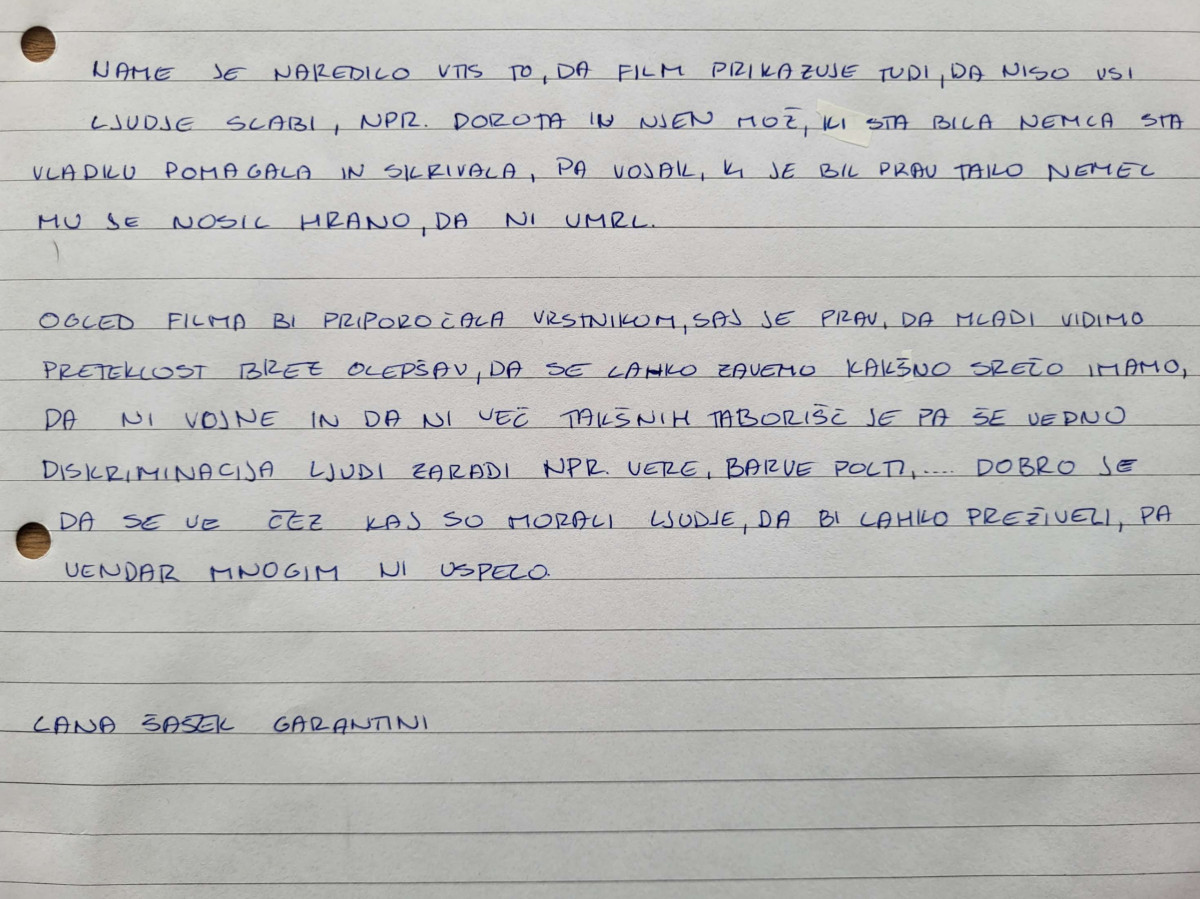 NAME JE NAREDILO VTIS TO, DA FILM PRIKAZUJE TUDI, DA NISO VSI
LJUDJE SLABI, NPR. DOROTA IN NJEN MOŽ, KI STA BILA NEMCA STA
VLADKU POMAGALA IN SKRIVALA, PA VOJAK, KI JE BIL PRAV TAKO NEMEC
MU JE NOSIL HRANO, DA NI UMRL.
OGLED FILMA BI PRIPOROČALA VRSTNIKOM, SAJ JE PRAV, DA MLADI VIDIMO
PRETEKLOST BREZ OLEPŠAV, DA SE LAHKO ZAVEMO KAKŠNO SREČO IMAMO,
DA NI VOJNE IN DA NI VEČ TAKŠNIH TABORIŠČ JE PA ŠE VEDNO
DISKRIMINACIJA LJUDI ZARADI NPR. VERE, BARVE POLTI,.... DOBRO JE
DA SE VE ČEZ KAJ SO MORALI LJUDJE, DA BI LAHKO PREŽIVELI, PA
VENDAR MNOGIM NI USPELO.
LANA ŠAŠEK GARANTINI